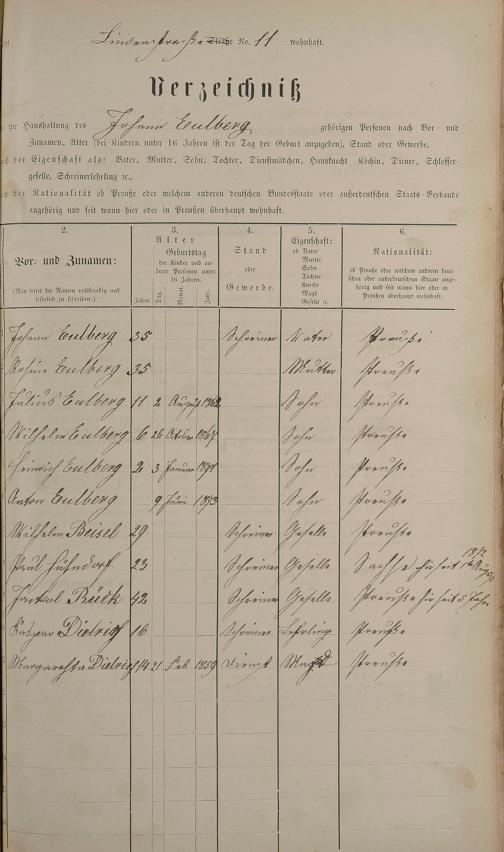 Lindenstraße Straße No. 11 wohnhaft.
Verzeichniß
zur Haushaltung des Johann Eulberg gehörigen Personen nach Vor- und
Zunamen, Alter (bei Kindern unter 16 Jahren ist der Tag der Geburt anzugeben), Stand oder Gewerbe,
der Eigenschaft als: Vater, Mutter, Sohn, Tochter, Dienstmädchen, Hausknecht Köchin, Diener, Schlosser-
geselle, Schreinerlehrling ꝛc.,
der Nationalität ob Preuße oder welchem anderen deutschen Bundesstaate oder außerdeutschen Staats-Verbande
angehörig und seit wann hier oder in Preußen überhaupt wohnhaft.
2. 3. 4. 5. 6.
Vor- und Zunamen:
(Man bittet die Namen vollständig und leserlich zu schreiben.)
Alter
Geburtstag
der Kinder und anderer Personen unter 16 Jahren.
Jahre Tag. Monat. Jahr.
Stand
oder
Gewerbe.
Eigenschaft:
ob Vater
Mutter
Sohn
Tochter
Knecht
Magd
Geselle ꝛc.
Nationalität:
ob Preuße oder welchem anderen deutschen oder außerdeutschen Staate angehörig und seit wann hier oder in Preußen überhaupt wohnhaft.
Johann Eulberg 35 Schreiner Vater Preuße
Rosine Eulberg 35 Mutter Preuße
Julius Eulberg 11 2 August 1862 Sohn Preuße
Wilhelm Eulberg 6 26 October 1867 Sohn Preuße
Heinrich Eulberg 2 3 Januar 1871 Sohn Preuße
Anton Eulberg 9 Juni 1873 Sohn Preuße
Wilhelm Beisel 29 Schreiner Geselle Preuße
Paul 23 Schreiner Geselle Sachse hier seit 1872
Rück 42 Schreiner Geselle Preuße hier seit 5 Jahr
Kaspar Dietrich 16 Schreiner Lehrling Preuße
Margaretha Dietrich 14 21 Feb 1859 Dienst Magd Preuße